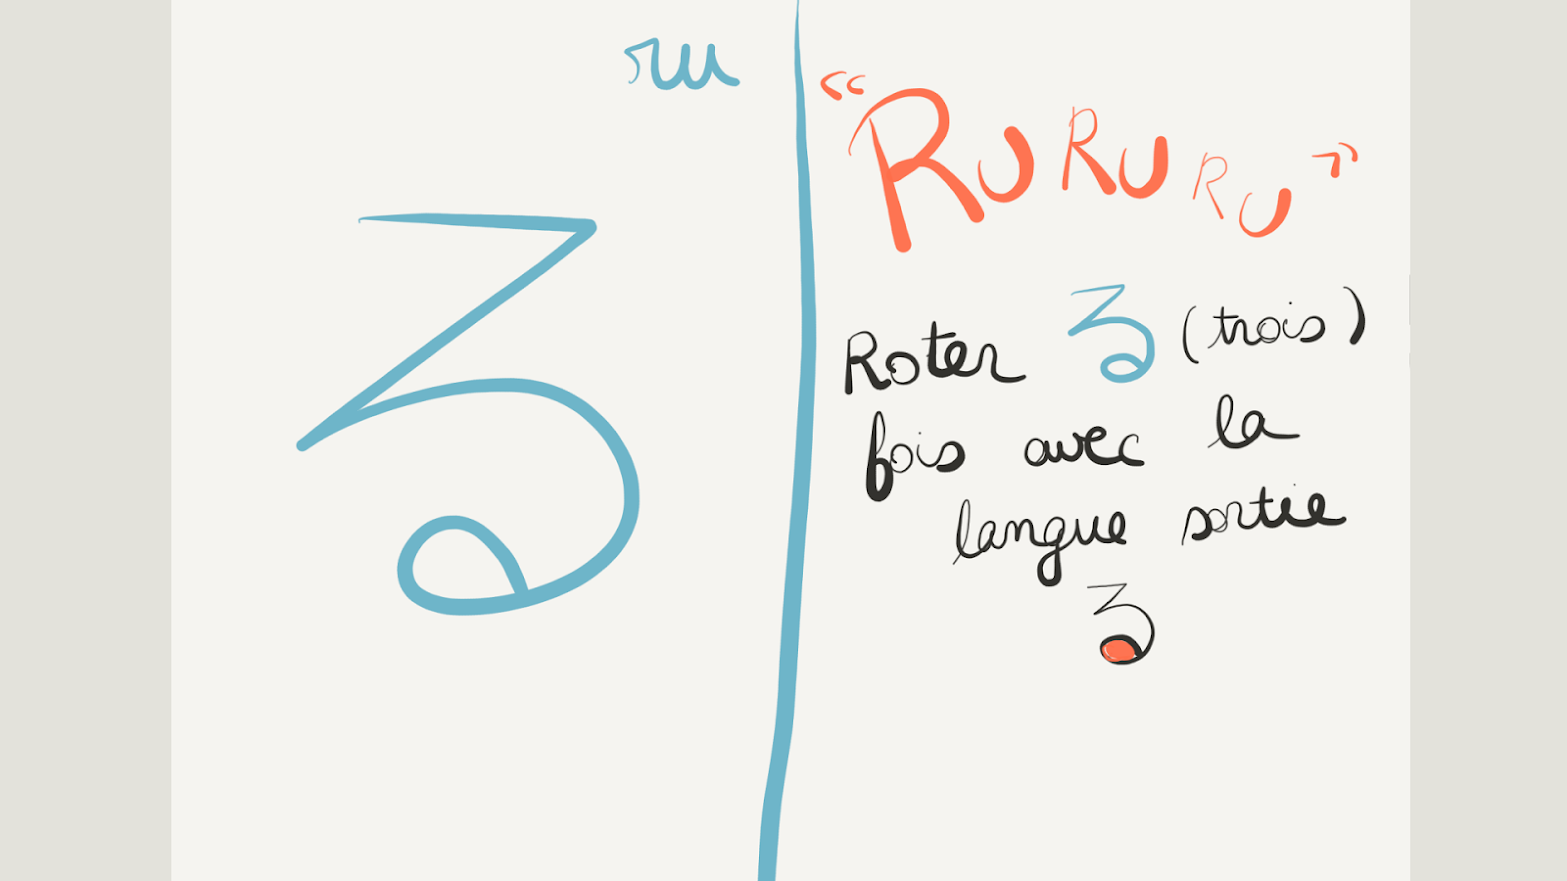 ru
る
« RU RU RU »
Roter る (trois)
fois avec la
langue sortie
る